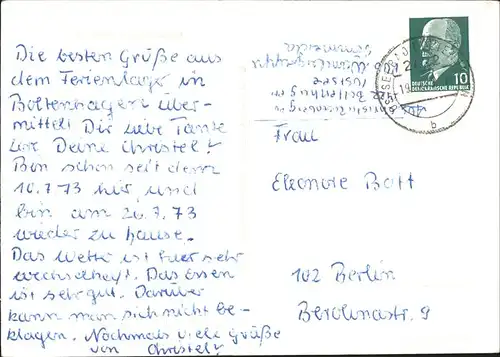 Die besten Grüße aus
dem Ferienlager in
Boltenhagen über-
mittelt Dir liebe Tante
Deine Christel!
Bin schon seit dem
10.7.73 hier und
bin am 26.7.73
wieder zu Hause.
Das Wetter ist hier sehr
wechselhaft. Das Essen
ist sehr gut. Darüber
kann man sich nicht be-
klagen. Nochmals viele Grüße
von Christel!
10
DEUTSCHE
DEMOKRATISCHE REPUBLIK
OSTSEEBAD
b
Ostsee
Frau
Eleonore Bott
102 Berlin
Berolinastr. 9